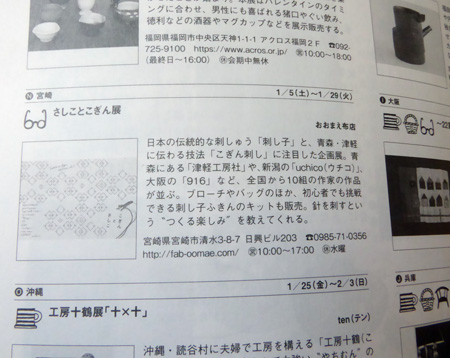 ングに合わせ、男性にも喜ばれる猪口やぐい飲み、
徳利などの酒器やマグカップなどを展示販売する。
福岡県福岡市中央区天神1-1-1 アクロス福岡2F ☎092-
725-9100 https://www.acros.or.jp/ 営10:00〜18:00
(最終日〜16:00) 休会期中無休
宮崎
1/5(土)〜1/29(火)
さしことこぎん展
おおまえ布店
日本の伝統的な刺しゅう「刺し子」と、青森・津軽
に伝わる技法「こぎん刺し」に注目した企画展。青
森にある「津軽工房社」や、新潟の「uchico(ウチコ)」、
大阪の「916」など、全国から10組の作家の作品
が並ぶ。ブローチやバッグのほか、初心者でも挑戦
できる刺し子ふきんのキットも販売。針を刺すとい
う〝つくる楽しみ〟を教えてくれる。
宮崎県宮崎市清水3-8-7 日興ビル203 ☎0985-71-0356
http://fab-oomae.com/ 営10:00〜17:00 休水曜
沖縄
1/25(金)〜2/3(日)
工房十鶴展「十×十」
ten(テン)
沖縄・読谷村に夫婦で工房を構える「工房十鶴(こ
大阪
〜22
兵庫